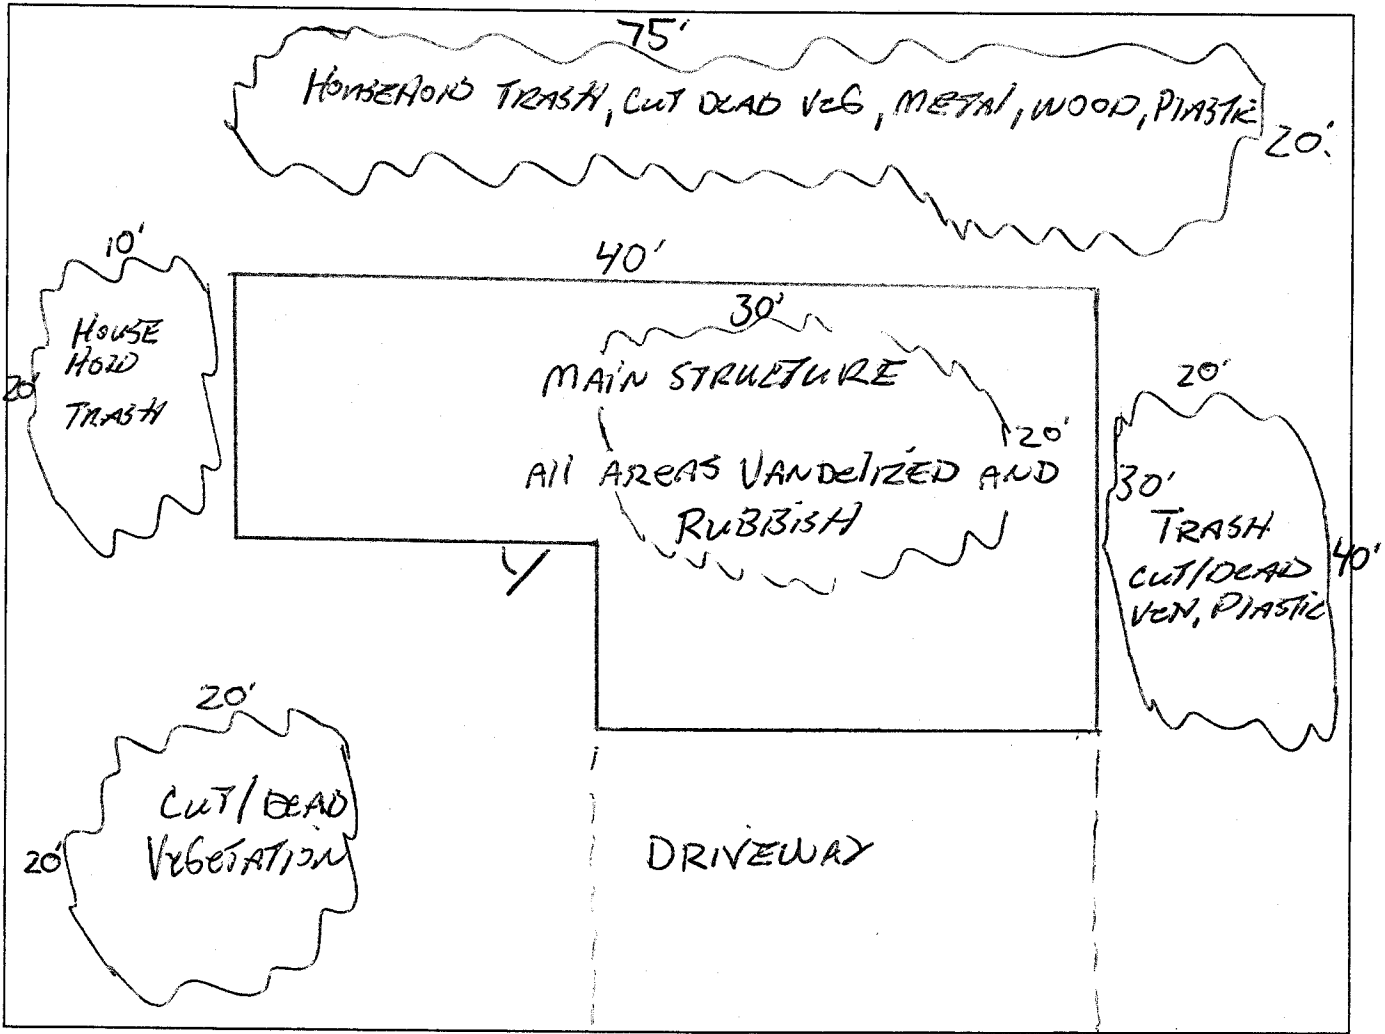 75'
HOUSEHOLD TRASH, CUT DEAD VEG, METAL, WOOD, PLASTIC
20'
10'
HOUSE
HOLD
TRASH
20'
40'
30'
MAIN STRUCTURE
20'
All AREAS VANDELIZED AND
RUBBISH
30'
20'
TRASH
CUT/DEAD
VEN, PLASTIC
40'
20'
CUT/DEAD
VEGETATION
20'
DRIVEWAY